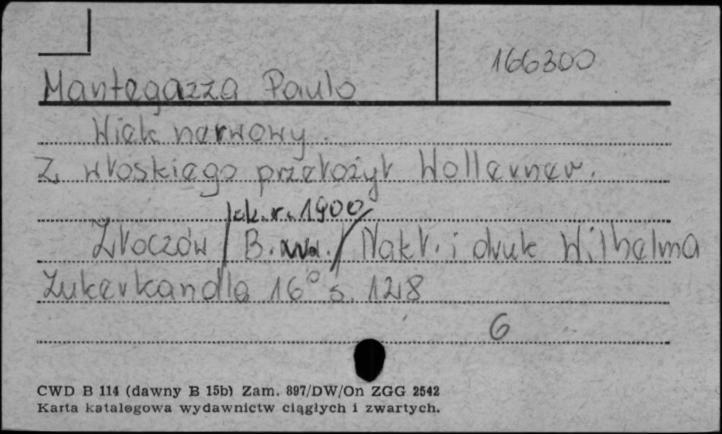 166300
Mantegazza Paulo
Wiek nerwowy.
Z włoskiego przełożył Wollerner.
[ok.r. 1900
Złoczów B. w. Nakł. i druk Wilhelma
Zukerkandla 16° s. 128
6
CWD B 114 (dawny B 15b) Zam. 897/DW/On ZGG 2542
Karta katalogowa wydawnictw ciągłych i zwartych.